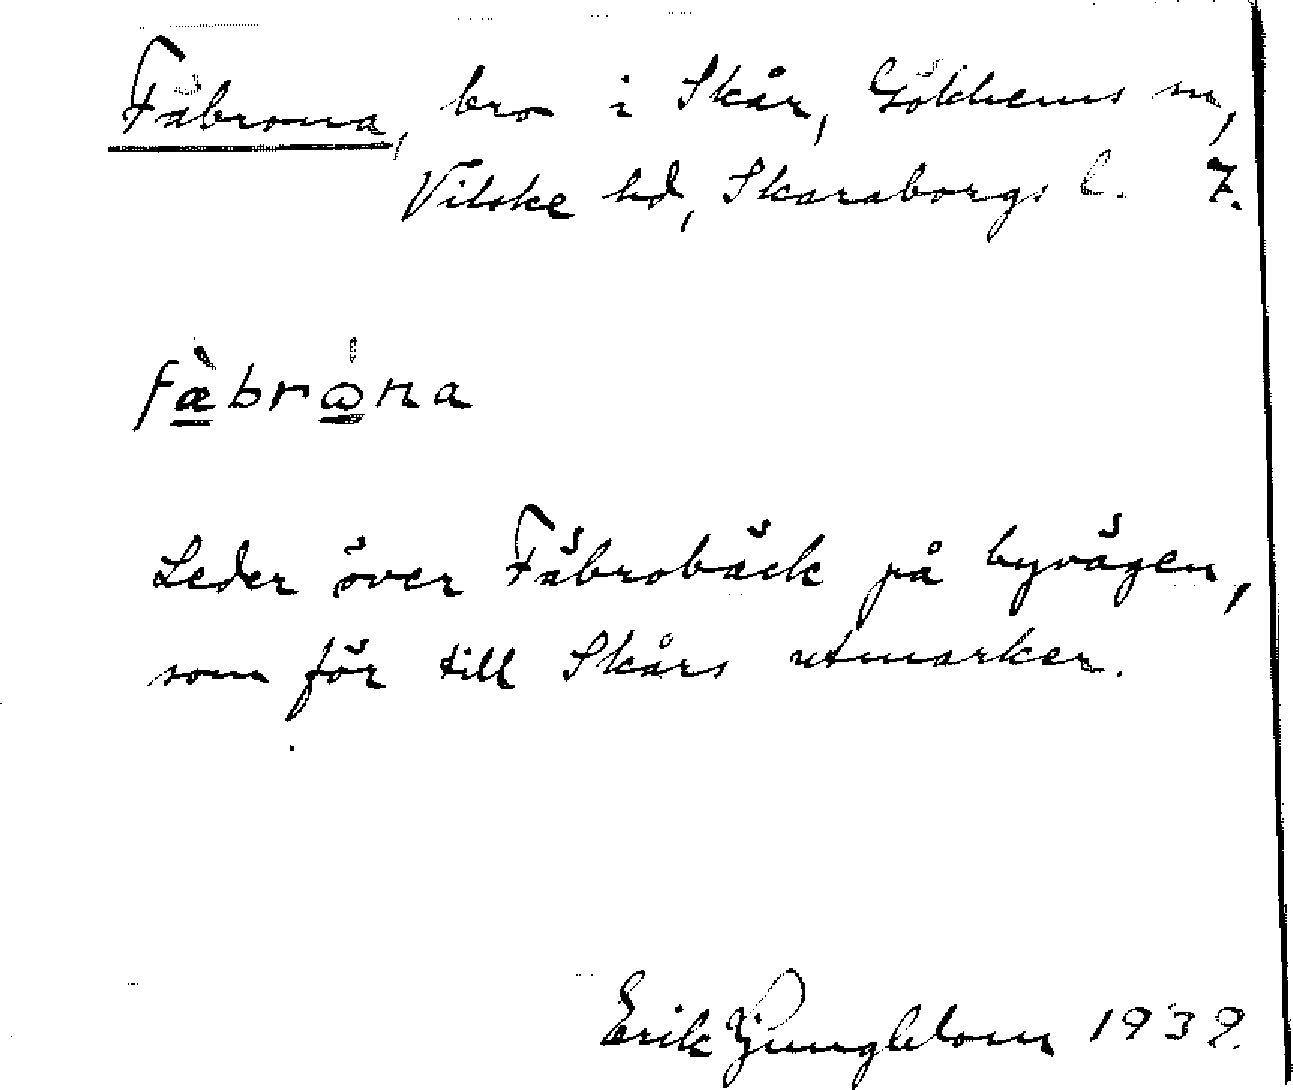 Fäbrona, bro i Skår, Gökhems sn,
Vilske hd, Skaraborgs l. 7.
fæ̀brɷ́na
Leder över Fäbrobäck på byvägen,
som för till Skårs utmarker.
Erik Ljungblom 1939.